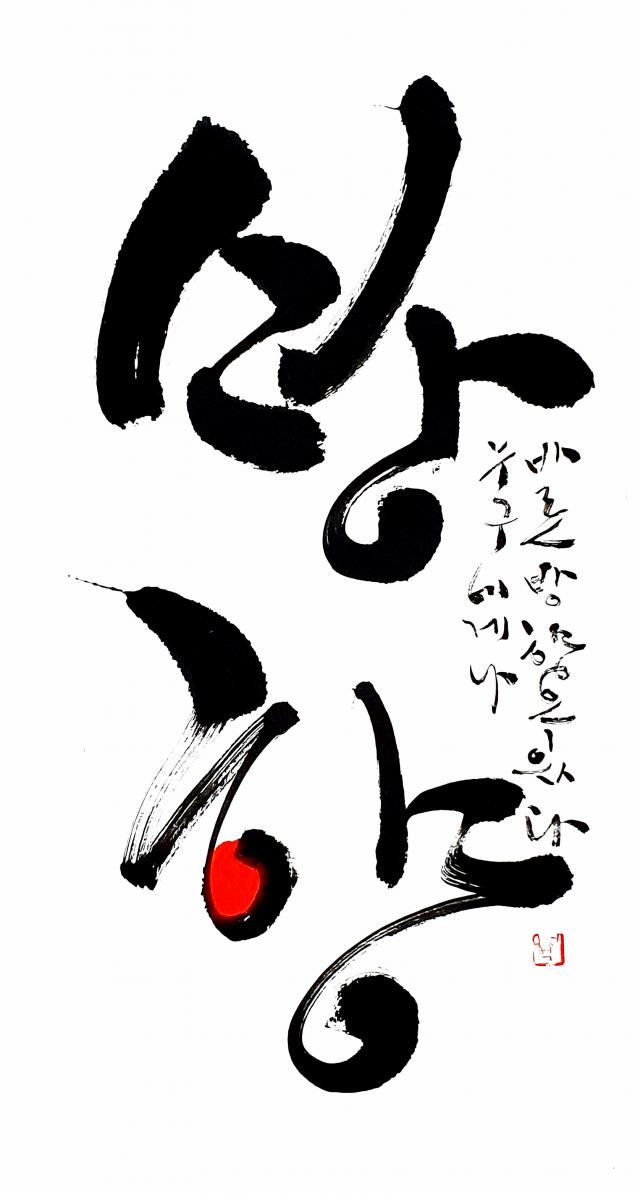 방향
누구에게나
바른 방향은 있다